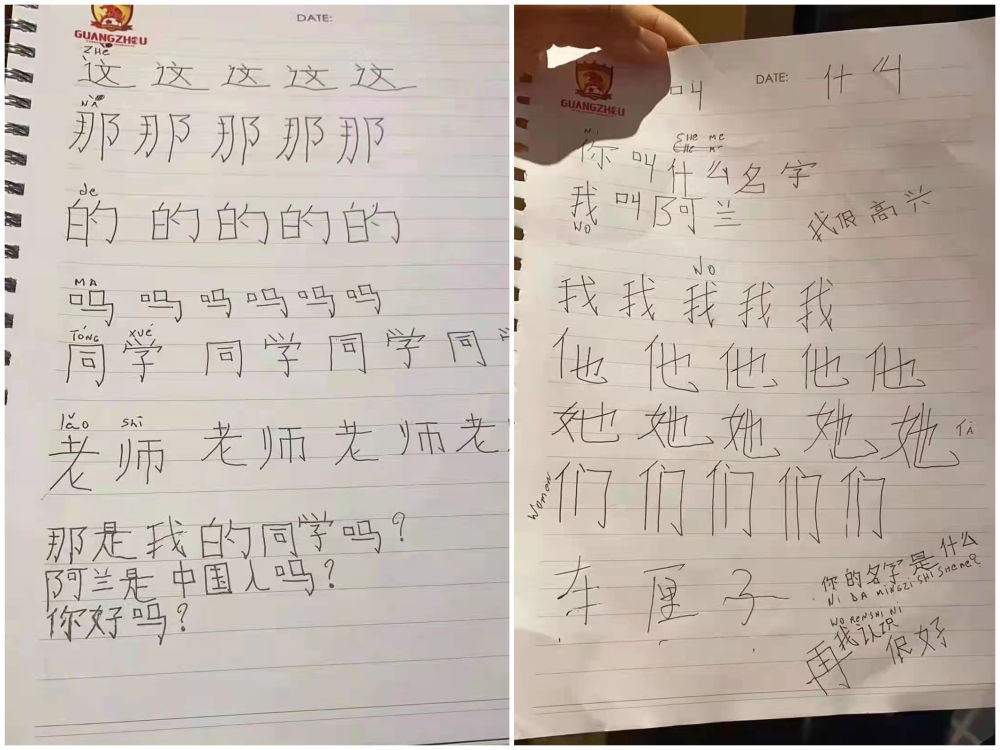 GUANGZHOU
DATE:
ZHè
这 这 这 这 这
NÀ
那 那 那 那 那
de
的 的 的 的 的
MA
吗 吗 吗 吗 吗 吗
TóNG xué
同 学 同 学 同 学 同
lǎo shī
老 师 老 师 老 师 老
那是我的同学吗？
阿兰是中国人吗？
你好吗？
GUANGZHOU
DATE:
叫 什 么
Ni SHE me
你叫什么名字
我叫阿兰
WO
我很高兴
WO
我 我 我 我 我
他 他 他 他 他
她 她 她 她 她 TÀ
women
们 们 们 们 们
车 厘 子
你的名字是什么
Ni DA MiNGZi SHi SHeme?
WO RENSHI Ni
我认识
再 很好